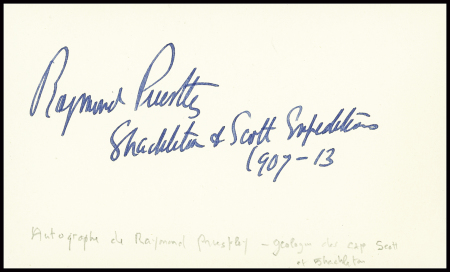 Raymond Priestley
Shackleton & Scott Expeditions
1907-13
Autographe de Raymond Priestley - geologue des exp Scott
et Shackleton